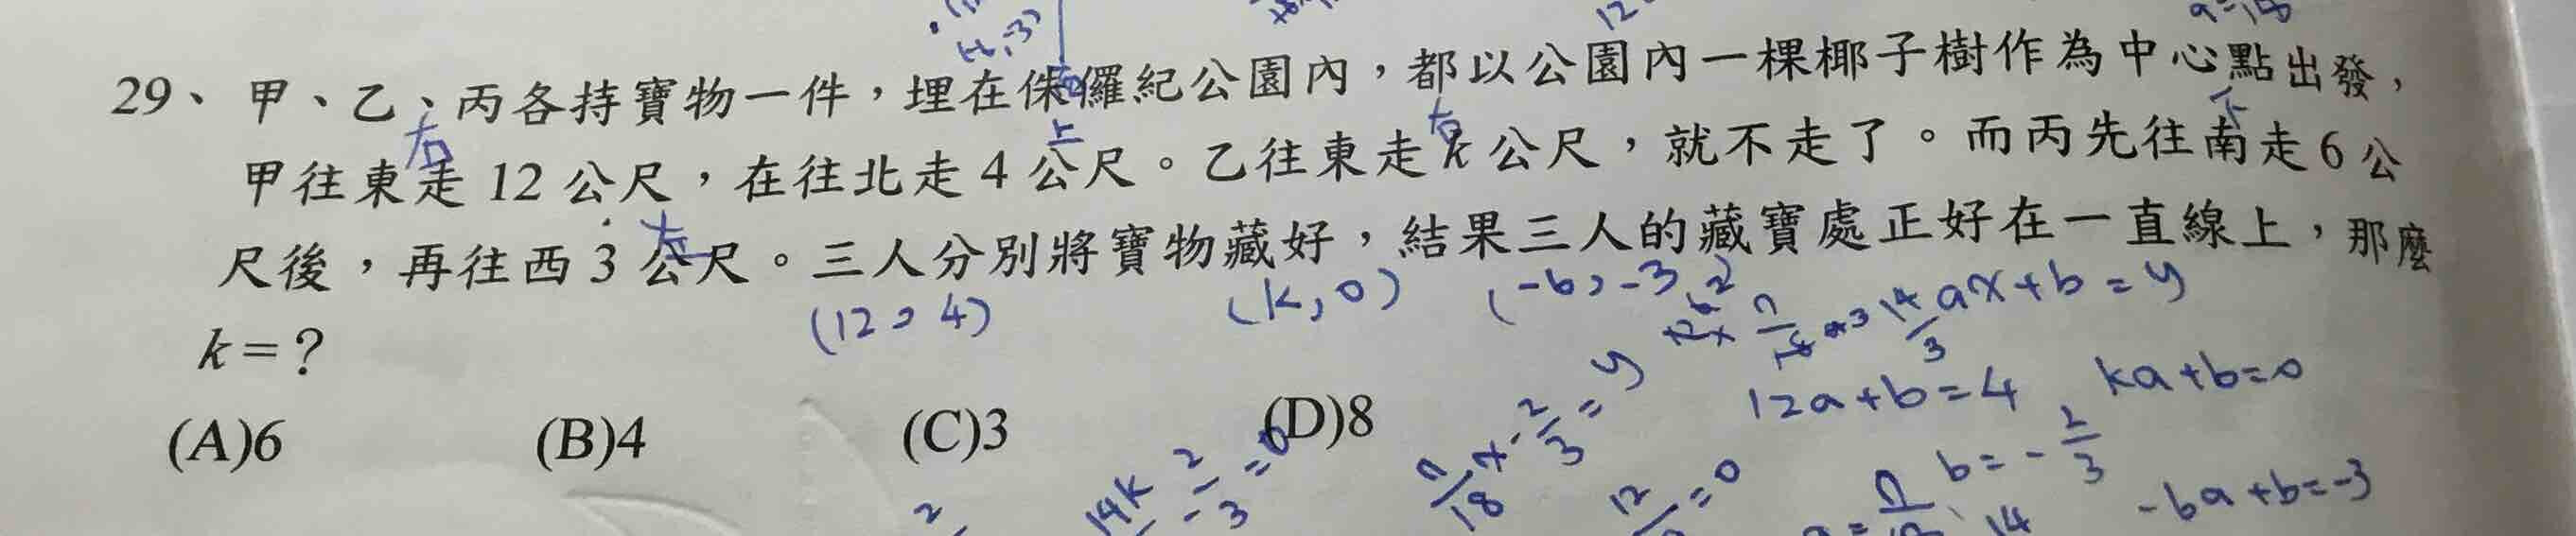 29、甲、乙、丙各持寶物一件，埋在侏儸紀公園內，都以公園內一棵椰子樹作為中心點出發，
右 上 右 下
甲往東走 12 公尺，在往北走 4 公尺。乙往東走 k 公尺，就不走了。而丙先往南走 6 公
左
尺後，再往西 3 公尺。三人分別將寶物藏好，結果三人的藏寶處正好在一直線上，那麼
(12, 4) (k, 0) (-6, -3) ax+b=y
k=？
12a+b=4 ka+b=0
(A)6 (B)4 (C)3 (D)8
b=-2/3
-6a+b=-3